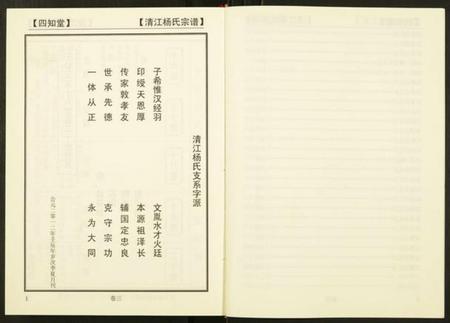 【四知堂】
【清江杨氏宗谱】
清江杨氏支系字派
子希惟汉经羽 文胤水才火廷
印绶天恩厚 本源祖泽长
传家敦孝友 辅国定忠良
世承先德 克守宗功
一体从正 永为大同
公元二零一二年壬辰年岁次季夏月刊
1
卷三